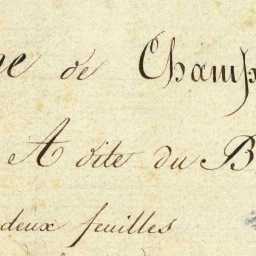 de Champ
A dite du B
deux feuilles